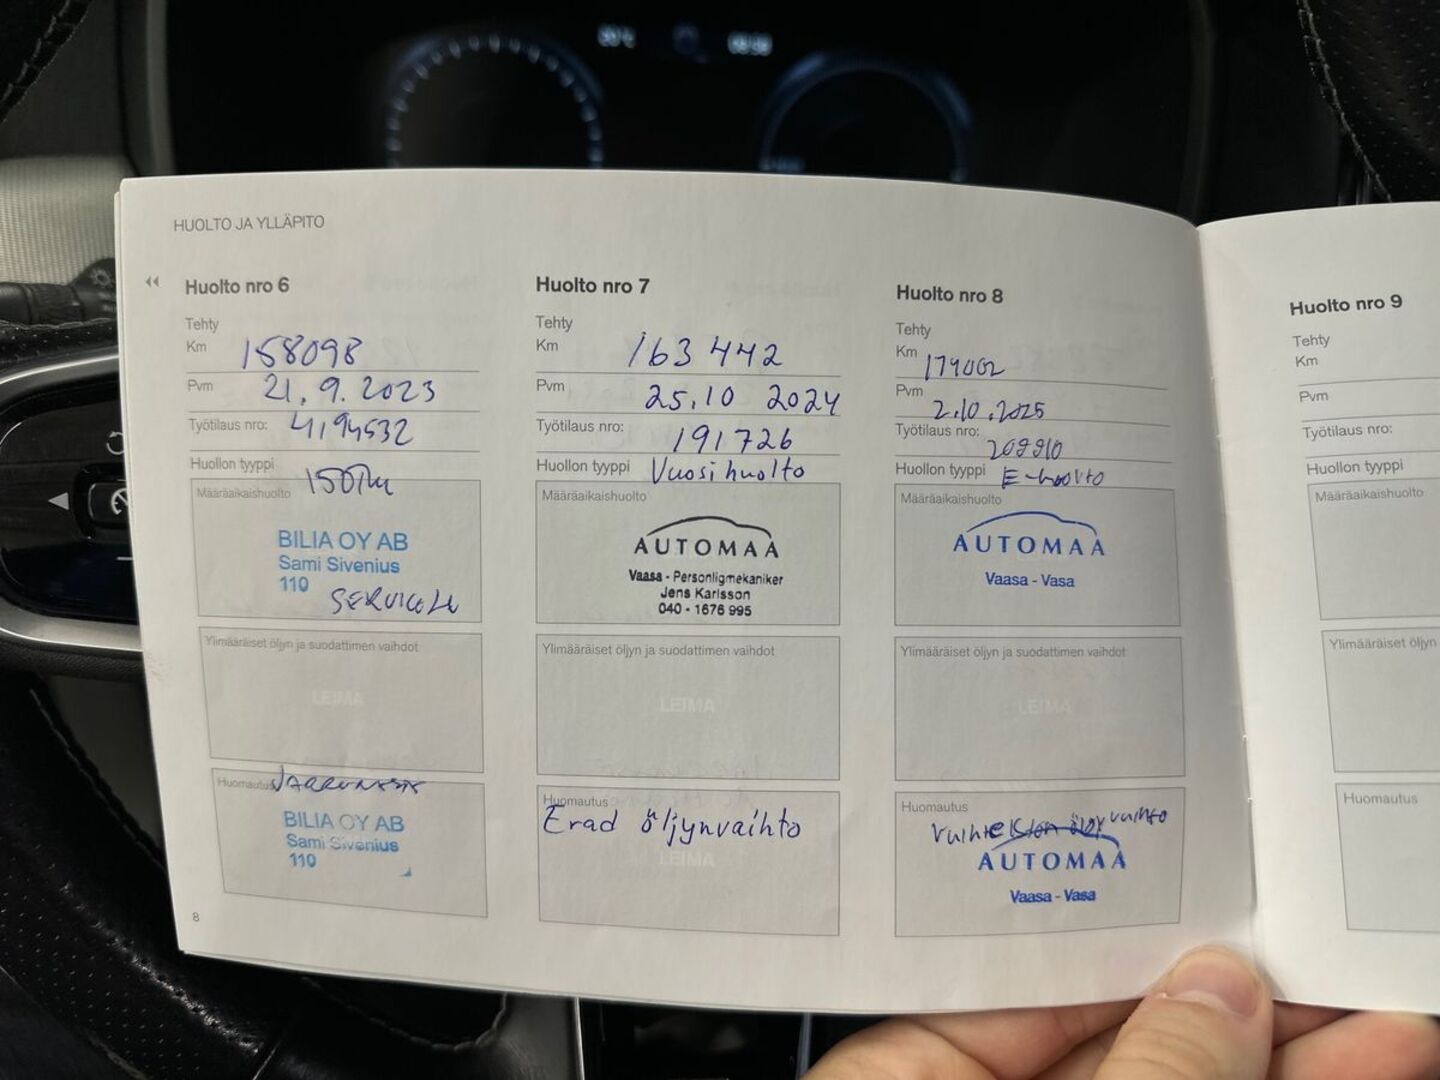 HUOLTO JA YLLÄPITO
Huolto nro 6
Tehty
Km 158098
Pvm 21.9.2023
Työtilaus nro: 4194532
Huollon tyyppi
Määräaikaishuolto
BILIA OY AB
Sami Sivenius
110
Ylimääräiset öljyn ja suodattimen vaihdot
LEIMA
Huomautus
BILIA OY AB
Sami Sivenius
110
8
Huolto nro 7
Tehty
Km 163 442
Pvm 25.10 2024
Työtilaus nro: 191726
Huollon tyyppi Vuosihuolto
Määräaikaishuolto
AUTOMAA
Vaasa - Personligmekaniker
Jens Karlsson
040 - 1676 995
Ylimääräiset öljyn ja suodattimen vaihdot
LEIMA
Huomautus
Erad öljynvaihto
LEIMA
Huolto nro 8
Tehty
Km 174002
Pvm 2.10.2025
Työtilaus nro:
Huollon tyyppi E-huolto
Määräaikaishuolto
AUTOMAA
Vaasa - Vasa
Ylimääräiset öljyn ja suodattimen vaihdot
LEIMA
Huomautus
AUTOMAA
Vaasa - Vasa
Huolto nro 9
Tehty
Km
Pvm
Työtilaus nro:
Huollon tyyppi
Määräaikaishuolto
Ylimääräiset öljyn
Huomautus